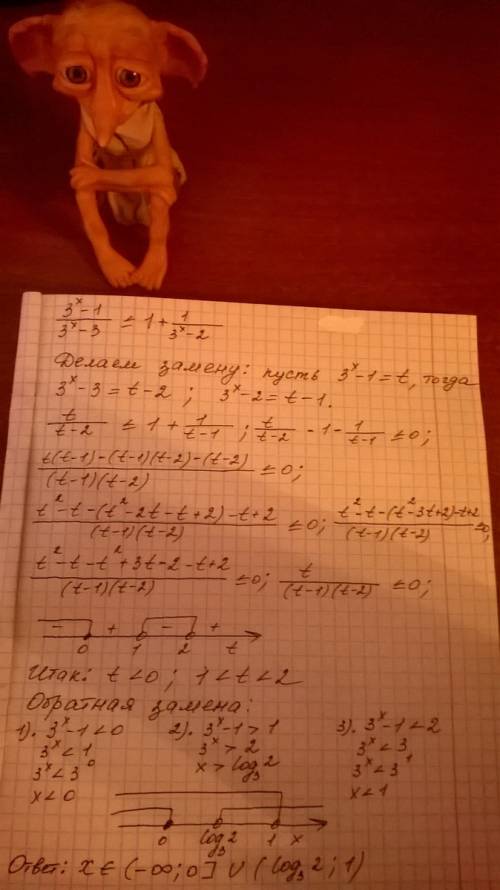 (3^x-1)/(3^x-3) ≤ 1 + 1/(3^x-2)
Делаем замену: пусть 3^x-1=t, тогда
3^x-3=t-2; 3^x-2=t-1.
t/(t-2) ≤ 1 + 1/(t-1); t/(t-2) - 1 - 1/(t-1) ≤0;
(t(t-1)-(t-1)(t-2)-(t-2))/((t-1)(t-2)) ≤0;
(t²-t-(t²-2t-t+2)-t+2)/((t-1)(t-2)) ≤0; (t²-t-(t²-3t+2)-t+2)/((t-1)(t-2)) ≤0;
(t²-t-t²+3t-2-t+2)/((t-1)(t-2)) ≤0; t/((t-1)(t-2)) ≤0;
- + - +
0 1 2 t
Итак: t<0; 1<t<2
Обратная замена:
1). 3^x-1<0 2). 3^x-1>1 3). 3^x-1<2
3^x<1 3^x>2 3^x<3
3^x<3^0 x>log₃2 3^x<3^1
x<0 x<1
0 log₃2 1 x
Ответ: x∈(-∞;0]∪(log₃2;1)